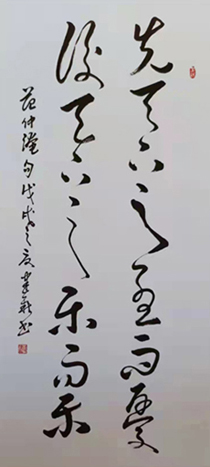 先天下之忧而忧
后天下之乐而乐
范仲淹句戊戌之夏